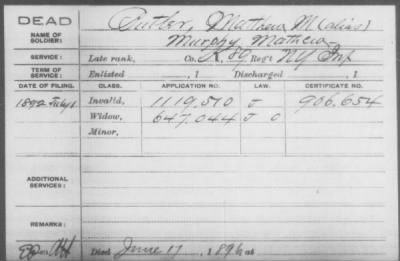 DEAD
NAME OF SOLDIER: Butler, Matthew M (alias)
Murphy, Mathew
SERVICE: Late rank, Co. K 89 Reg't NY Inf
TERM OF SERVICE: Enlisted , 1 Discharged , 1
DATE OF FILING. CLASS. APPLICATION NO. LAW. CERTIFICATE NO.
1892 July 1 Invalid, 1119,510 J 906,654
Widow, 647,044 J
Minor,
ADDITIONAL SERVICES:
REMARKS:
Died June 17, 1896 at